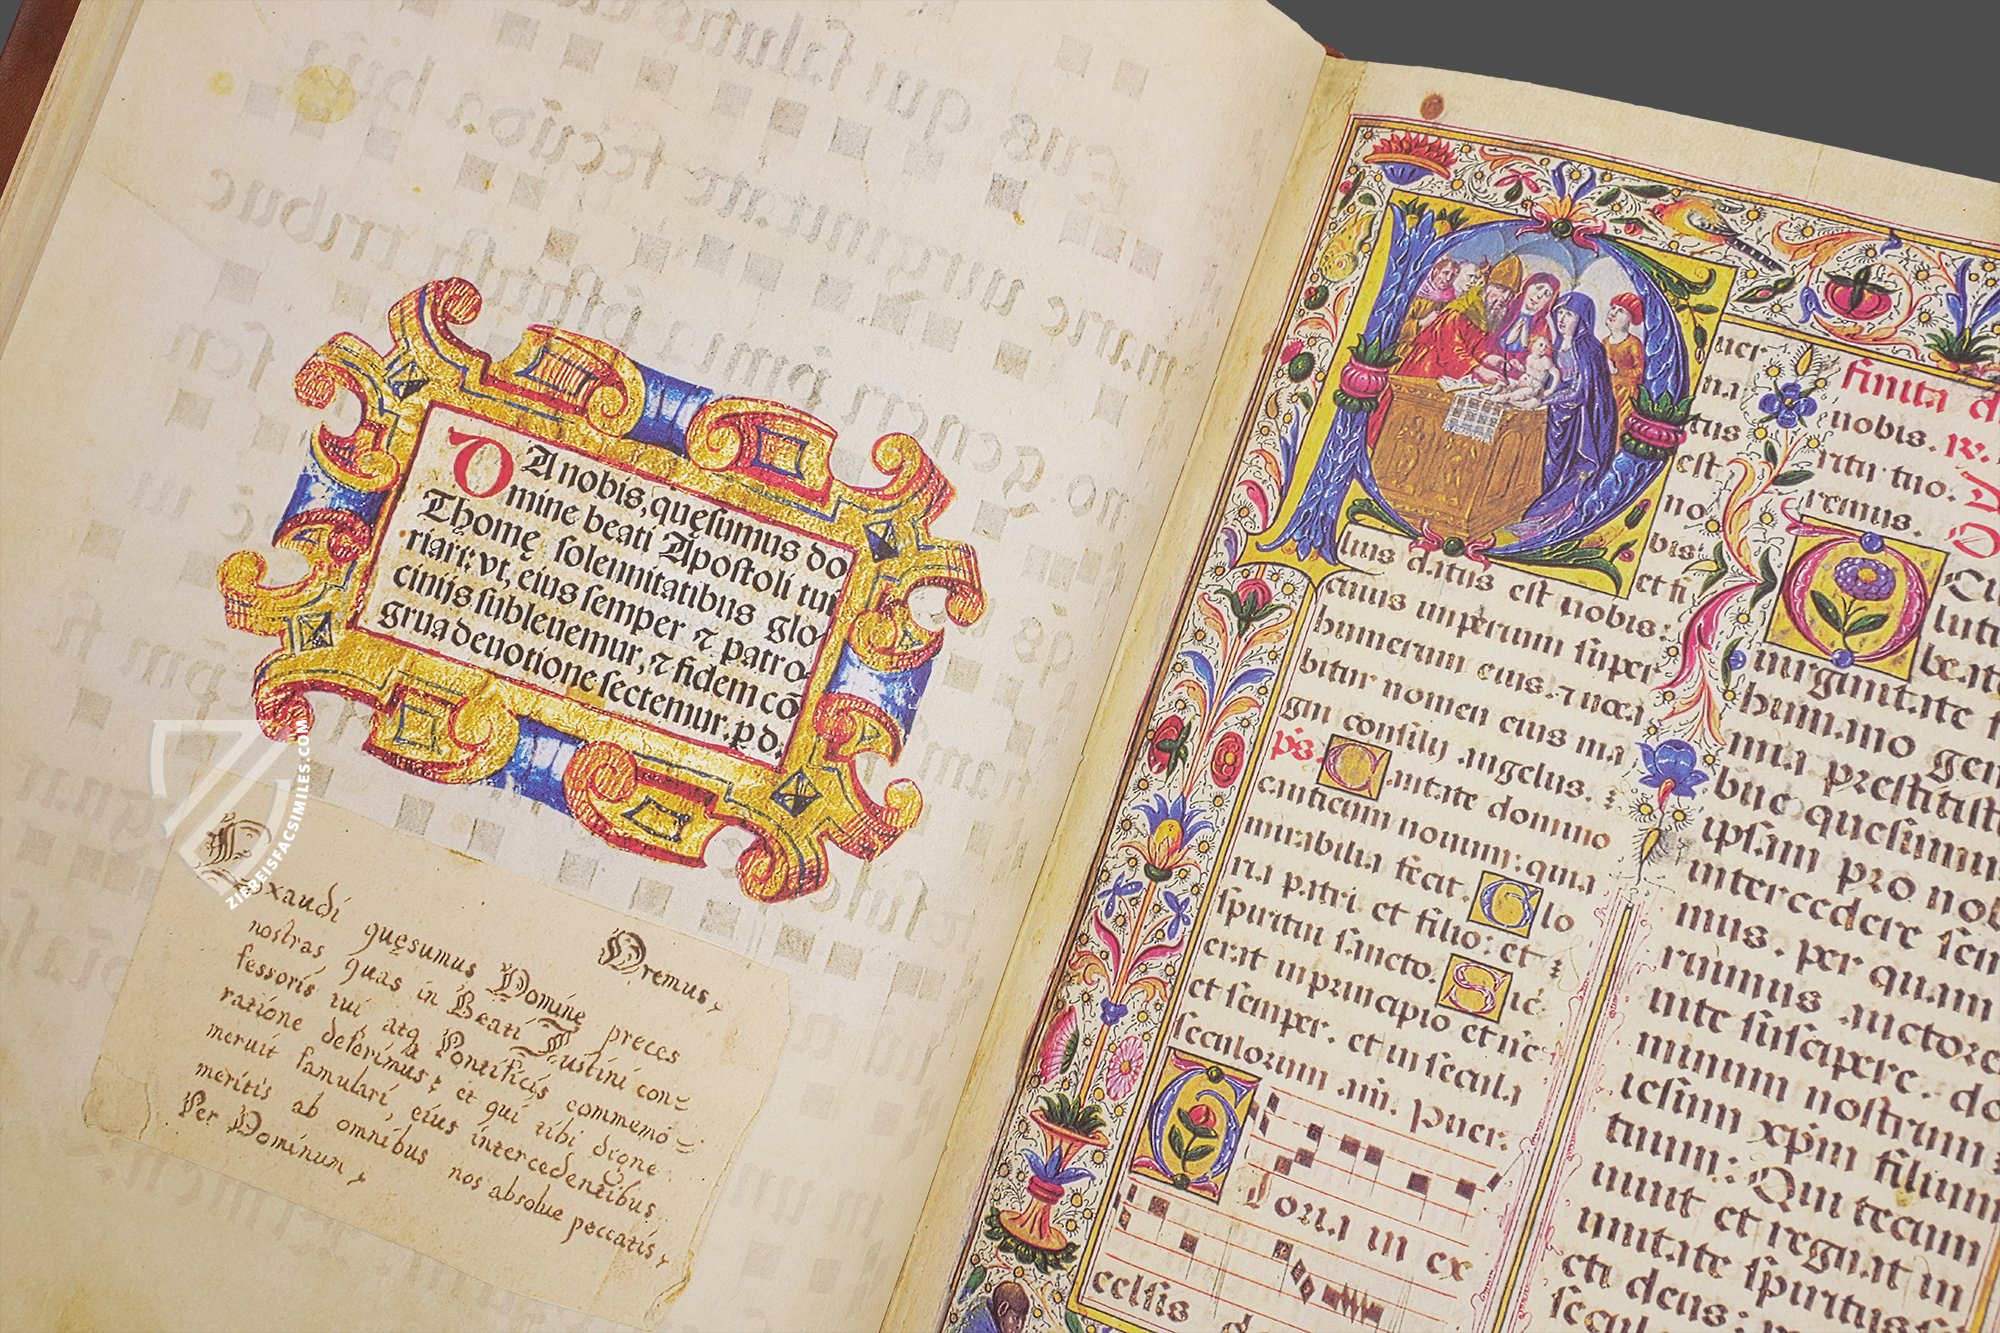 DA nobis, quęsumus do
mine beati Apostoli tui
Thomę solennitatibus glo
riari: vt, eius semper ⁊ patro-
cinijs subleuemur, ⁊ fidem cō
grua deuotione sectemur. p d.
Oremus,
Exaudi quęsumus Domine preces
nostras quas in Beati Iustini con=
fessoris tui atq Pontificis commemo=
ratione deferimus: et qui tibi digne
meruit famulari, eius intercedentibus
meritis ab omnibus nos absolue peccatis,
Per Dominum,
ZIEREISFACSIMILES.COM
Puer
na
tus
est
no
bis:
et fi
lius datus est nobis:
cuius imperium super
humerum eius. ⁊ uoca
bitur nomen eius ma
gni consilij angelus.
ps. Cantate domino
canticum nouum: quia
mirabilia fecit. Glo
ria patri et filio: et
spiritui sancto. Sic̄
erat in principio et nc̄
et semper. et in secula
seculorum am̄. Puer.
Gloria in ex
celsis
finita
nobis. ℟.
ritu tuo.
remus.
uirginitate
humano gen
mia prestitisti
bue quesumus
ipsam pro nob
intercedere sen
mus. per quam
ruimus auctore
uite suscipere. do
minum nostrum
iesum xp̄m filium
tuum: Qui tecum
uiuit et regnat in
unitate spiritus
cti deus: